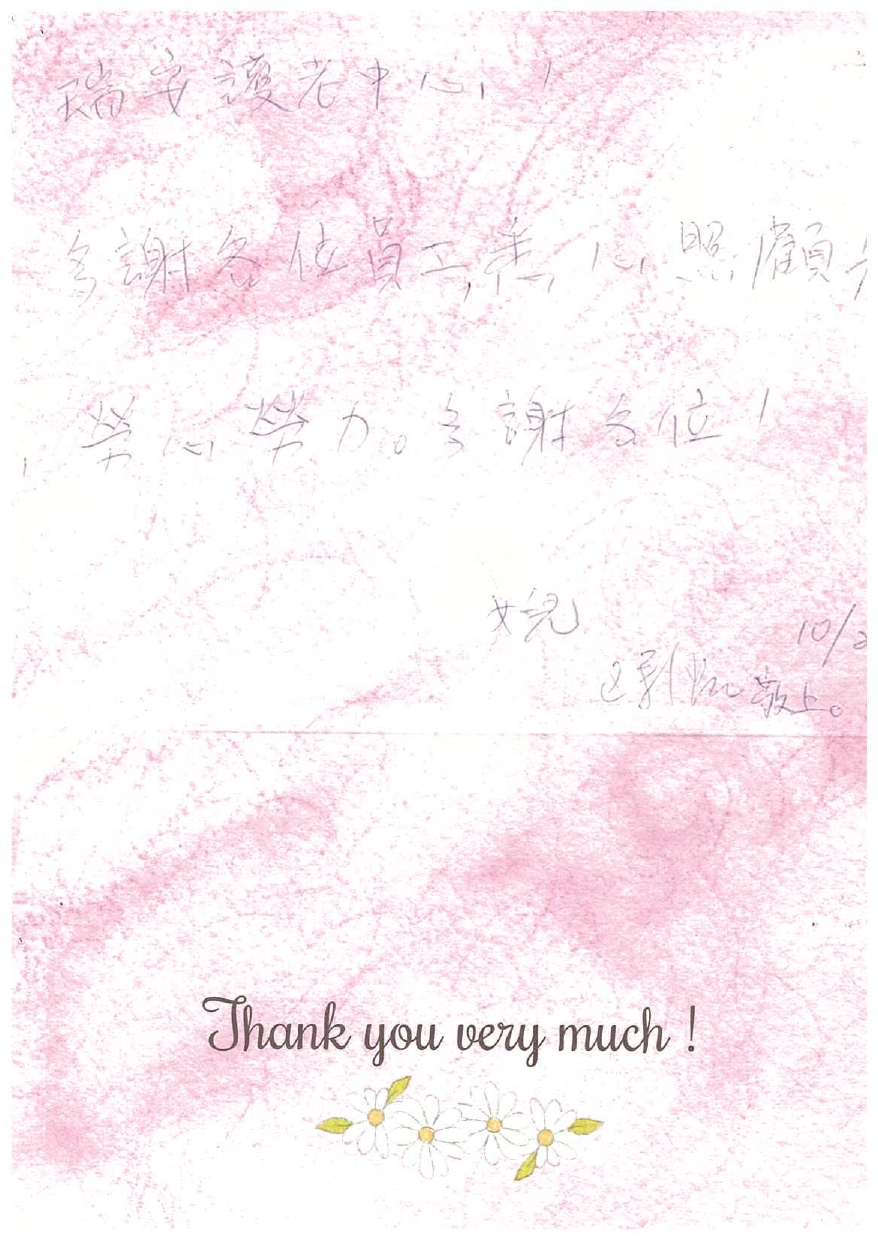 瑞安護老中心！
多謝各位員工悉心照顧
，勞心勞力。多謝各位！
女兒
10/2
敬上。
Thank you very much !